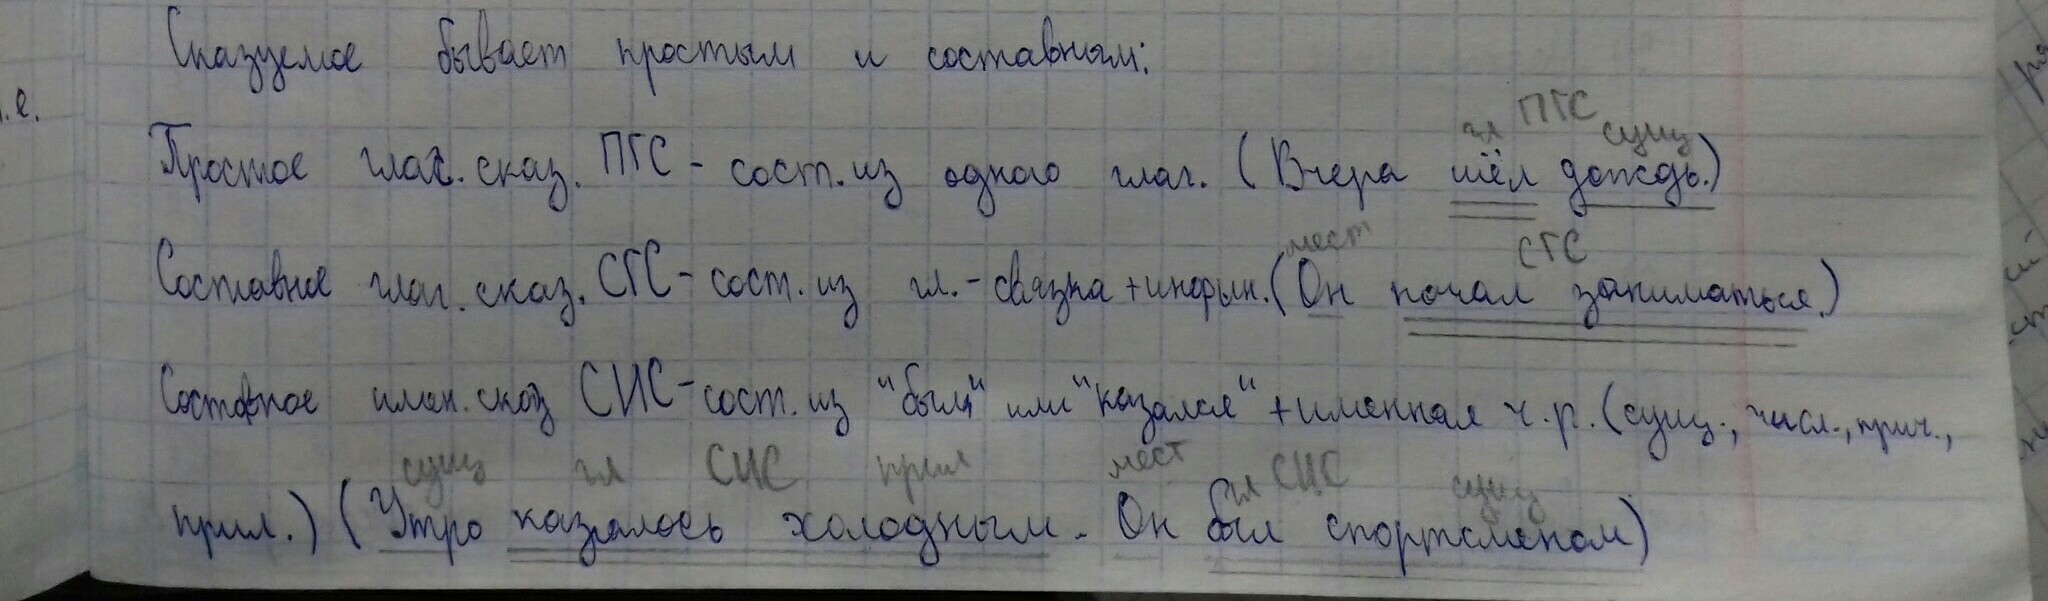 Сказуемое бывает простым и составным:
.е.
гл ПГС сущ
Простое глаг. сказ. ПГС - сост. из одного глаг. (Вчера шёл дождь.)
мест СГС
Составное глаг. сказ. СГС - сост. из гл. - связка + инфин. (Он начал заниматься.)
Составное имен. сказ СИС - сост. из "был" или "казался" + именная ч.р. (сущ., числ., прич.,
сущ гл СИС прил мест гл СИС сущ
прил.) (Утро казалось холодным. Он был спортсменом)